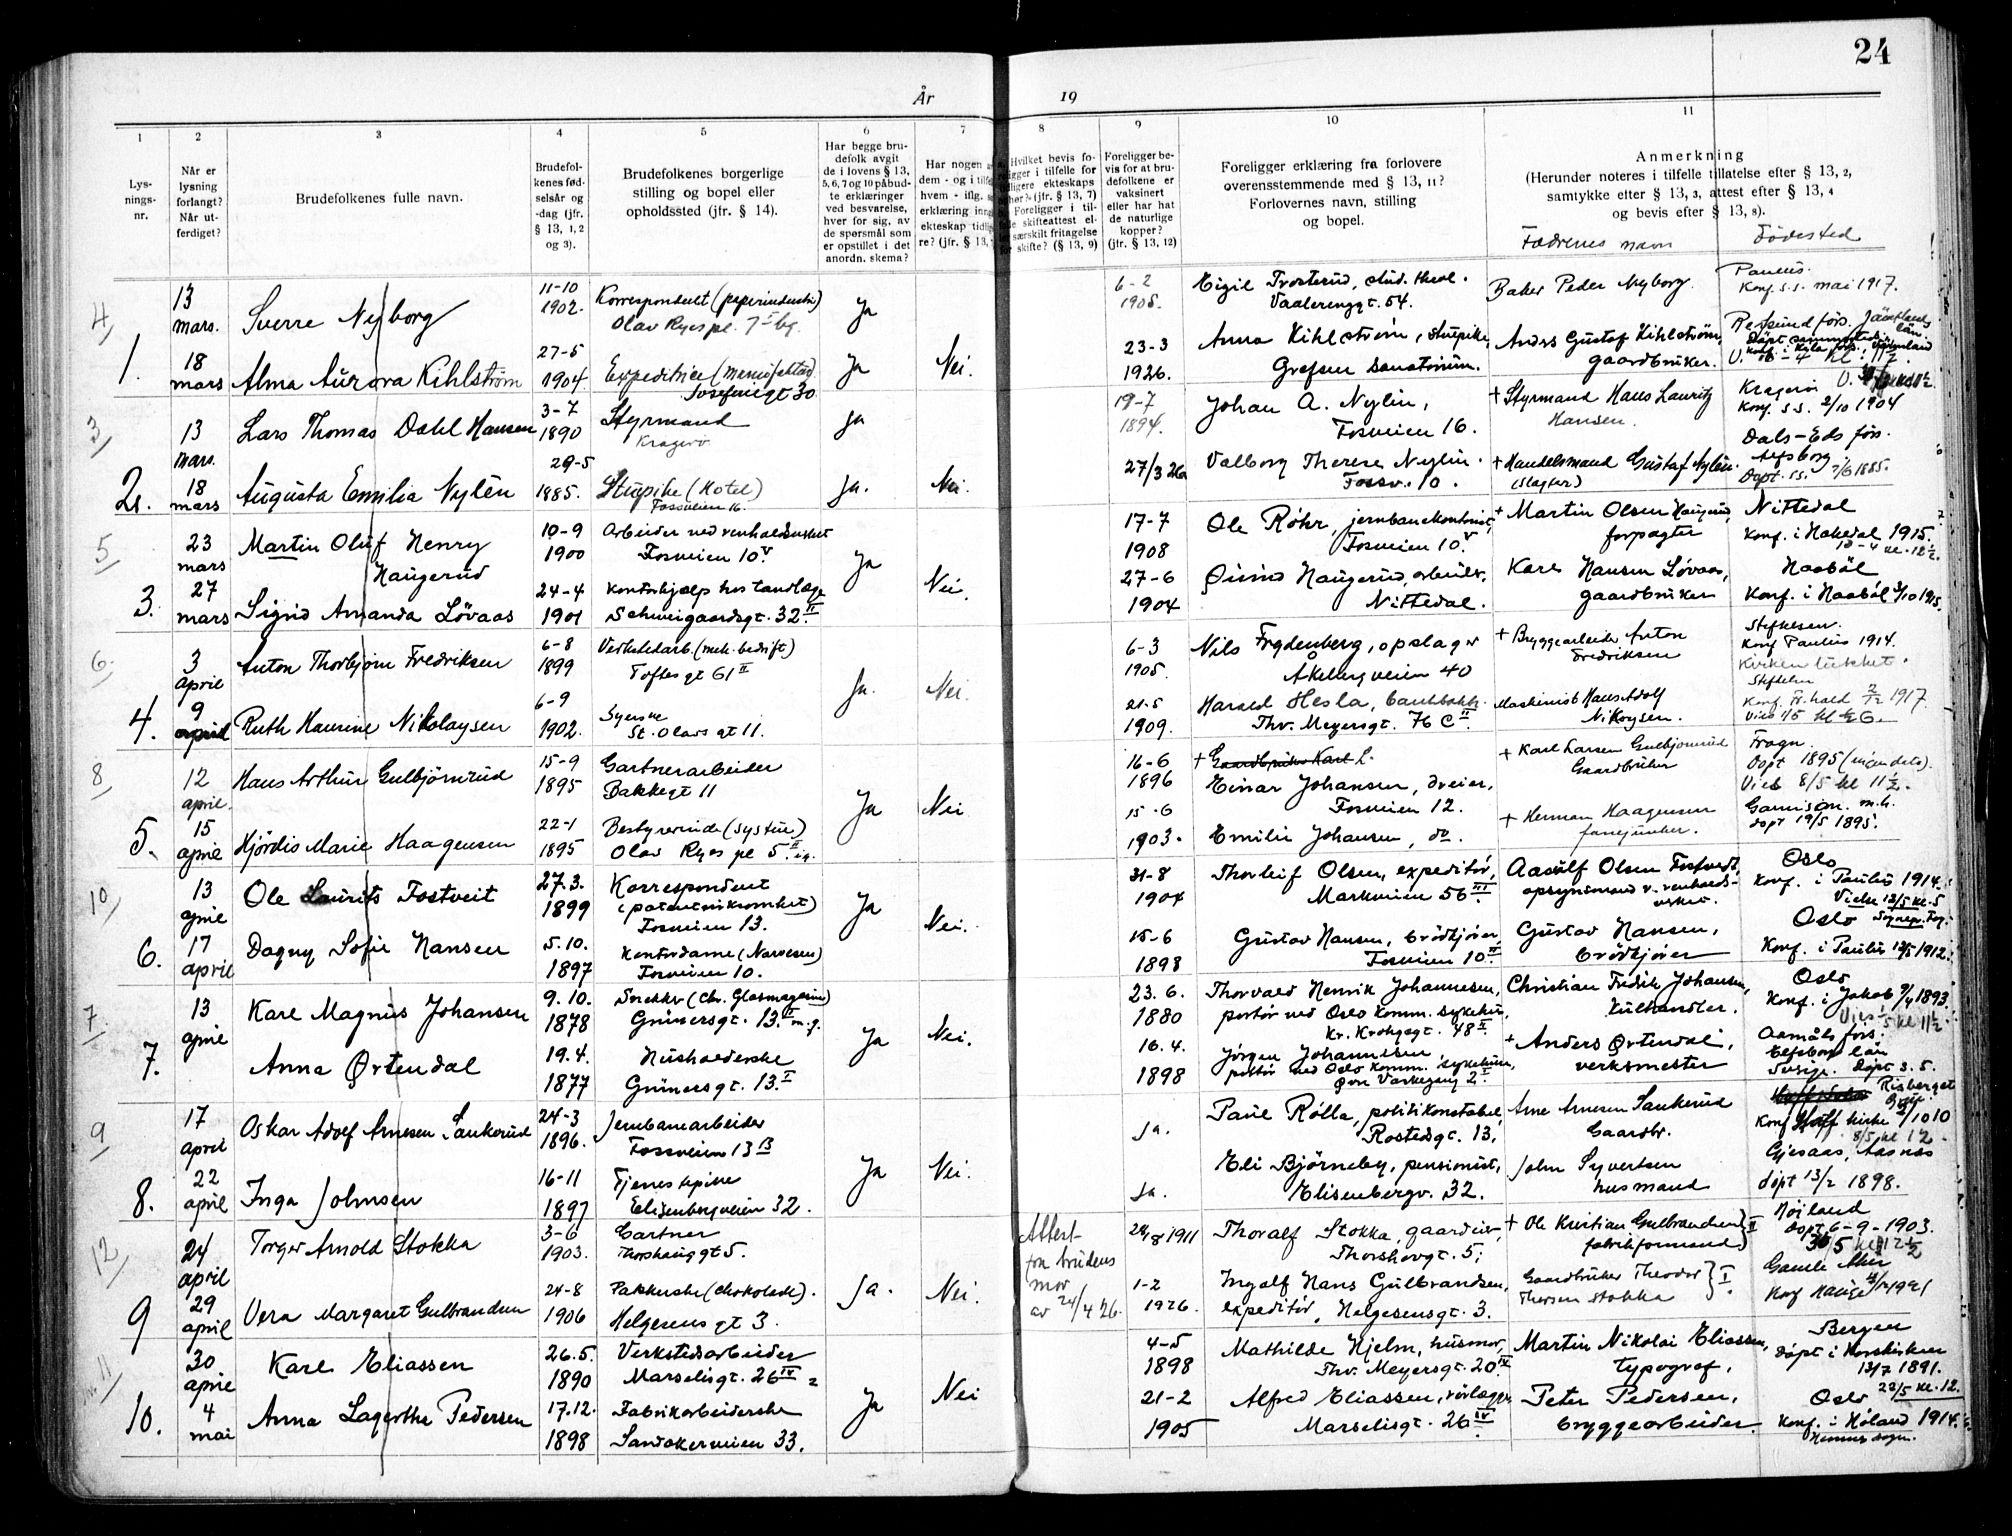 24
År 19
1 2 3 4 5 6 7 8 9 10 11
Lys-
nings-
nr.
Når er
lysning
forlangt?
Når ut-
ferdiget?
Brudefolkenes fulle navn.
Brudefol-
kenes fød-
selsår og
-dag (jfr.
§ 13, 1, 2
og 3).
Brudefolkenes borgerlige
stilling og bopel eller
opholdssted (jfr. § 14).
Har begge bru-
defolk avgit
de i lovens § 13,
5, 6, 7 og 10 påbud-
te erklæringer
ved besvarelse,
hver for sig, av
de spørsmål som
er opstillet i det
anordn. skema?
Har nogen
dem - og i tilf
hvem - iflg.
erklæring inng
ekteskap tidlig
re? (jfr. § 13,
Hvilket bevis fo-
religger i tilfelle for
ekteskaps
(jfr. § 13, 7)
Foreligger i til-
skifteattest el-
særskilt fritagelse
skifte? (§ 13, 9)
Foreligger be-
vis for at bru-
defolkene er
vaksinert
eller har hat
de naturlige
kopper?
(jfr. § 13, 12)
Foreligger erklæring fra forlovere
overensstemmende med § 13, 11?
Forlovernes navn, stilling
og bopel.
Anmerkning
(Herunder noteres i tilfelle tillatelse efter § 13, 2,
samtykke efter § 13, 3, attest efter § 13, 4
og bevis efter § 13, 8).
Fædrenes navn Fødested
4/ 13 mars. Sverre Nyborg 11-10 1902. Korrespondent (papirindustri) Olav Ryes pl. 7 Ja 6-2 1908. Eigil Trosterud, stud. theol. Vaalerenggt. 54. Baker Peder Nyborg. Paulus. Konf. s.s. mai 1917.
1. 18 mars Alma Aurora Kihlström 27-5 1904. Expeditrice Josefinegt 30 Ja Nei. 23-3 1926. Anna Kihlström, stuepike, Grefsen sanatorium. Anders Gustaf Kihlström, gaardbruker.
3/ 13 mars. Lars Thomas Dahl Hansen 3-7 1890 Styrmand Kragerø Ja 19-7 1894. Johan A. Nylin, Fosveien 16. + Styrmand Hans Lauritz Hansen. Kragerø Konf. s.s. 2/10 1904
2. 18 mars Augusta Emilia Nylén 29-5 1885. Stuepike (Hotel) Fossveien 16. Ja. Nei 27/3 26 Valborg Therese Nylin. Fossv. 10. + Handelsmand Gustaf Nylén. (Slagter) Dals-Eds förs. Aefsborg Døpt. s.s. 7/6 1885.
5/ 23 mars Martin Oluf Henry Haugerud 10-9 1900 Arbeider ved renholdsverket Fosveien 10 V Ja 17-7 1908 Ole Røhr, jernbanekontorist, Fosveien 10 V. + Martin Olsen Haugerud, forpagter Nittedal Konf. i Hakedal 1915. 12-4 kl. 12½.
3. 27 mars Sigrid Amanda Løvaas 24-4 1901 Kontorhjælp hos tandlæge Schweigaardsgt. 32 II. Nei. 27-6 1904 Øivind Haugerud, arbeider, Nittedal. Karl Hansen Løvaas, gaardbruker Haabøl Konf. i Haabøl 3/10 1915.
6. 3 april Anton Thorbjørn Fredriksen 6-8 1899 Verkstedarb. (mek. bedrift) Toftes gt 61 II Ja. 6-3 1905. Nils Frydenberg, opslager Åkebergveien 40 + Bryggearbeider Anton Fredriksen Konf Paulus 1914. Kirken lukket.
4. 9 april Ruth Haurine Nikolaysen 6-9 1902. Syerske St. Olavs gt 11. Nei. 21-5 1909. Harald Hesla, Thv. Meyersgt. 76 C II. Maskinist Hans Adolf Nikoysen. Konf. Fr.hald 1917
8/ 12 april. Hans Arthur Gulbjørnrud 15-9 1895 Gartnerarbeider Bakkegt 11 Ja 16-6 1896 + Gaardbruker Karl L. Einar Johansen, dreier, Fosveien 12. + Karl Larsen Gulbjørnrud Gaardbruker Frogn. Døpt 1895 Vies 8/5 kl 11½.
5. 15 april Hjørdis Marie Haagensen 22-1 1895 Bestyrerinde (systue) Olav Ryes pl 5. II Nei 15-6 1903. Emilie Johansen, do. + Herman Haagensen fanejunker. Garnison. m.h. døpt 19/5 1895.
10/ 13 april Ole Laurits Fostveit 27.3. 1899 Korrespondent (patentvirksomhet) Fosveien 13. Ja 31-8 1904 Thorleif Olsen, expeditør, Markveien 56 III. Aasulf Olsen Fostvedt, opsynsmand v. renholds- verket. Oslo Konf. i Paulus 1914. Vielse 12/5 kl. 5
6. 17 april Dagny Sofie Hansen 5.10. 1897 Kontordame (Narvesen) Fosveien 10. Nei. 15-6 1898 Gustav Hansen, brødkjører, Fosveien 10 II. Gustav Hansen, brødkjører Oslo Konf. i Paulus 12/5 1912.
7/ 13 april Karl Magnus Johansen 9.10. 1878 Snekker (Chr. Glasmagasin) Grünersgt. 13. II m.g. Ja 23.6. 1880 Thorvald Henrik Johannesen, portør ved Oslo komm. sykehus, Kr. Krohgsgt. 48 II. Christian Fredrik Johansen, kulhandler. Oslo Konf. i Jakob 9/4 1893. Vies 1/5 kl 11½.
7. Anna Ørtendal 19.4. 1877 Husholderske Grünersgt. 13. I Nei. 16.4. 1898 Jørgen Johannesen, portør ved Oslo komm. sykehus, Øvre Vaskegang 2 I. + Anders Ørtendal, verksmester Elfsborg län Sverige. Døpt s.s.
9/ 17 april Oskar Adolf Arnesen Sankerud 24-3 1896. Jernbanearbeider Fossveien 13 B Ja Ja. Paul Rølla, politikonstabel, Rostedsgt. 13. Arne Arnesen Sankerud Gaardbr. Risberget Konf Hoff kirke 1910 8/5 kl 12
8. 22 april Inga Johnsen 16-11 1897 Tjenestepike Elisenbergveien 32. Nei. Ja. Eli Bjørneby, pensionist, Elisenbergv. 32. John Syvertsen husmand Gjesaas, Aasnes døpt 13/2 1898.
12/ 24 april Torger Arnold Stokka 3-6 1903. Gartner Thorshauggt 5. Ja. Attest fra brudens mor av 24/4 26. 24/8 1911 Thoralf Stokka, gaardeier, Thorshovgt. 5; + Ole Kristian Gulbrandsen fabrikformand } II Høiland døpt 6-9-1903. 30/5 kl 12½
9 29 april Vera Margaret Gulbrandsen 24-8 1906 Pakkerske (chokolade). Helgesens gt 3. Nei. 1-2 1926. Ingolf Hans Gulbrandsen, expeditør, Helgesensgt. 3. Gaardbruker Theodor Thorsen Stokka } I. Gamle Aker Konf Hauge 1921
11 30 april Karl Eliassen 26.5. 1890 Verkstedsarbeider Marselisgt. 26 IV Ja 4-5 1898 Mathilde Hjelm, husmor, Thv. Meyersgt. 20 IV. Martin Nikolai Eliassen, typograf. Bergen døpt i Korskirken 13/7 1891. 22/5 kl. 12.
10. 4 mai Anna Lagertha Pedersen 17.12. 1898 Fabrikarbeiderske Sandakerveien 33. Nei 21-2 1905 Alfred Eliassen, rørlægger, Marselisgt. 26 IV. Peter Pedersen, bryggearbeider. Oslo Konf. i Høland 1914. Hemnes sogn.